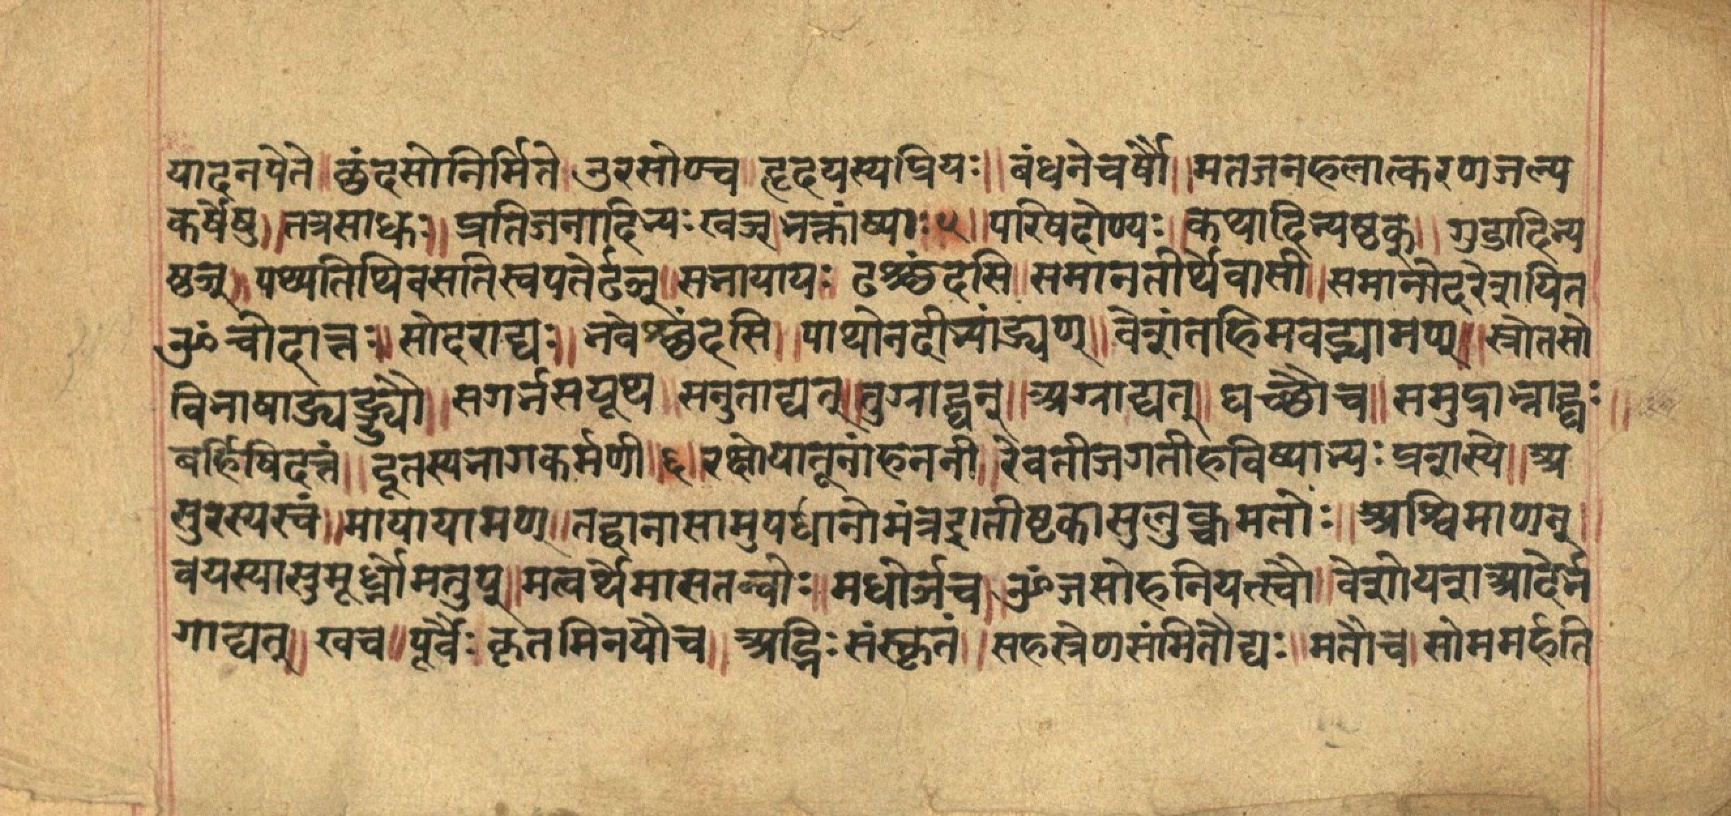 यादनपेते ॥ छंदसोनिर्मिते ॥ उरसोण्च ॥ हृदयस्यप्रियः ॥ बंधनेचर्षौ ॥ मतजनहलात्करणजल्प
कर्षेषु ॥ तत्रसाधुः ॥ प्रतिजनादिभ्यःखञ् ॥ भक्ताण्णः ॥ ५ ॥ परिषदोण्यः ॥ कथादिभ्यष्ठक् ॥ गुडादिभ्य
ष्ठञ् ॥ पथ्यतिथिवसतिस्वपतेर्ढञ् ॥ सभायायः ॥ ढश्छंदसि ॥ समानतीर्थेवासी ॥ समानोदरेशयित
ओंचोदात्तः ॥ सोदराद्यः ॥ भवेश्छंदसि ॥ पाथोनदीभ्यांड्यण् ॥ वेशंतहिमवद्भ्यामण् ॥ स्रोतसो
विभाषाड्यड्ड्यौ ॥ सगर्भसयूथ सनुताद्यन् ॥ तुग्राद्घन् ॥ अग्राद्यत् ॥ घच्छौच ॥ समुद्राभ्राद्घः ॥
बर्हिषिदत्तं ॥ दूतस्यभागकर्मणी ॥ ६ ॥ रक्षोयातूनांहननी ॥ रेवतीजगतीहविष्याभ्यः प्रशस्ये ॥ अ
सुरस्यस्वं ॥ मायायामण् ॥ तद्वानासामुपधानोमंत्रइतीष्टकासुलुक्चमतोः ॥ अश्विमाणन् ॥
वयस्यासुमूर्ध्नोमतुप् ॥ मत्वर्थेमासतन्वोः ॥ मधोर्ञच ॥ ओंजसोहनियत्खौ ॥ वेशोयशआदेर्भ
गाद्यत् ॥ खच ॥ पूर्वैः कृतमिनयौच ॥ अद्भिः संस्कृतं ॥ सहस्रेणसंमितौद्यः ॥ मतौच ॥ सोममर्हति